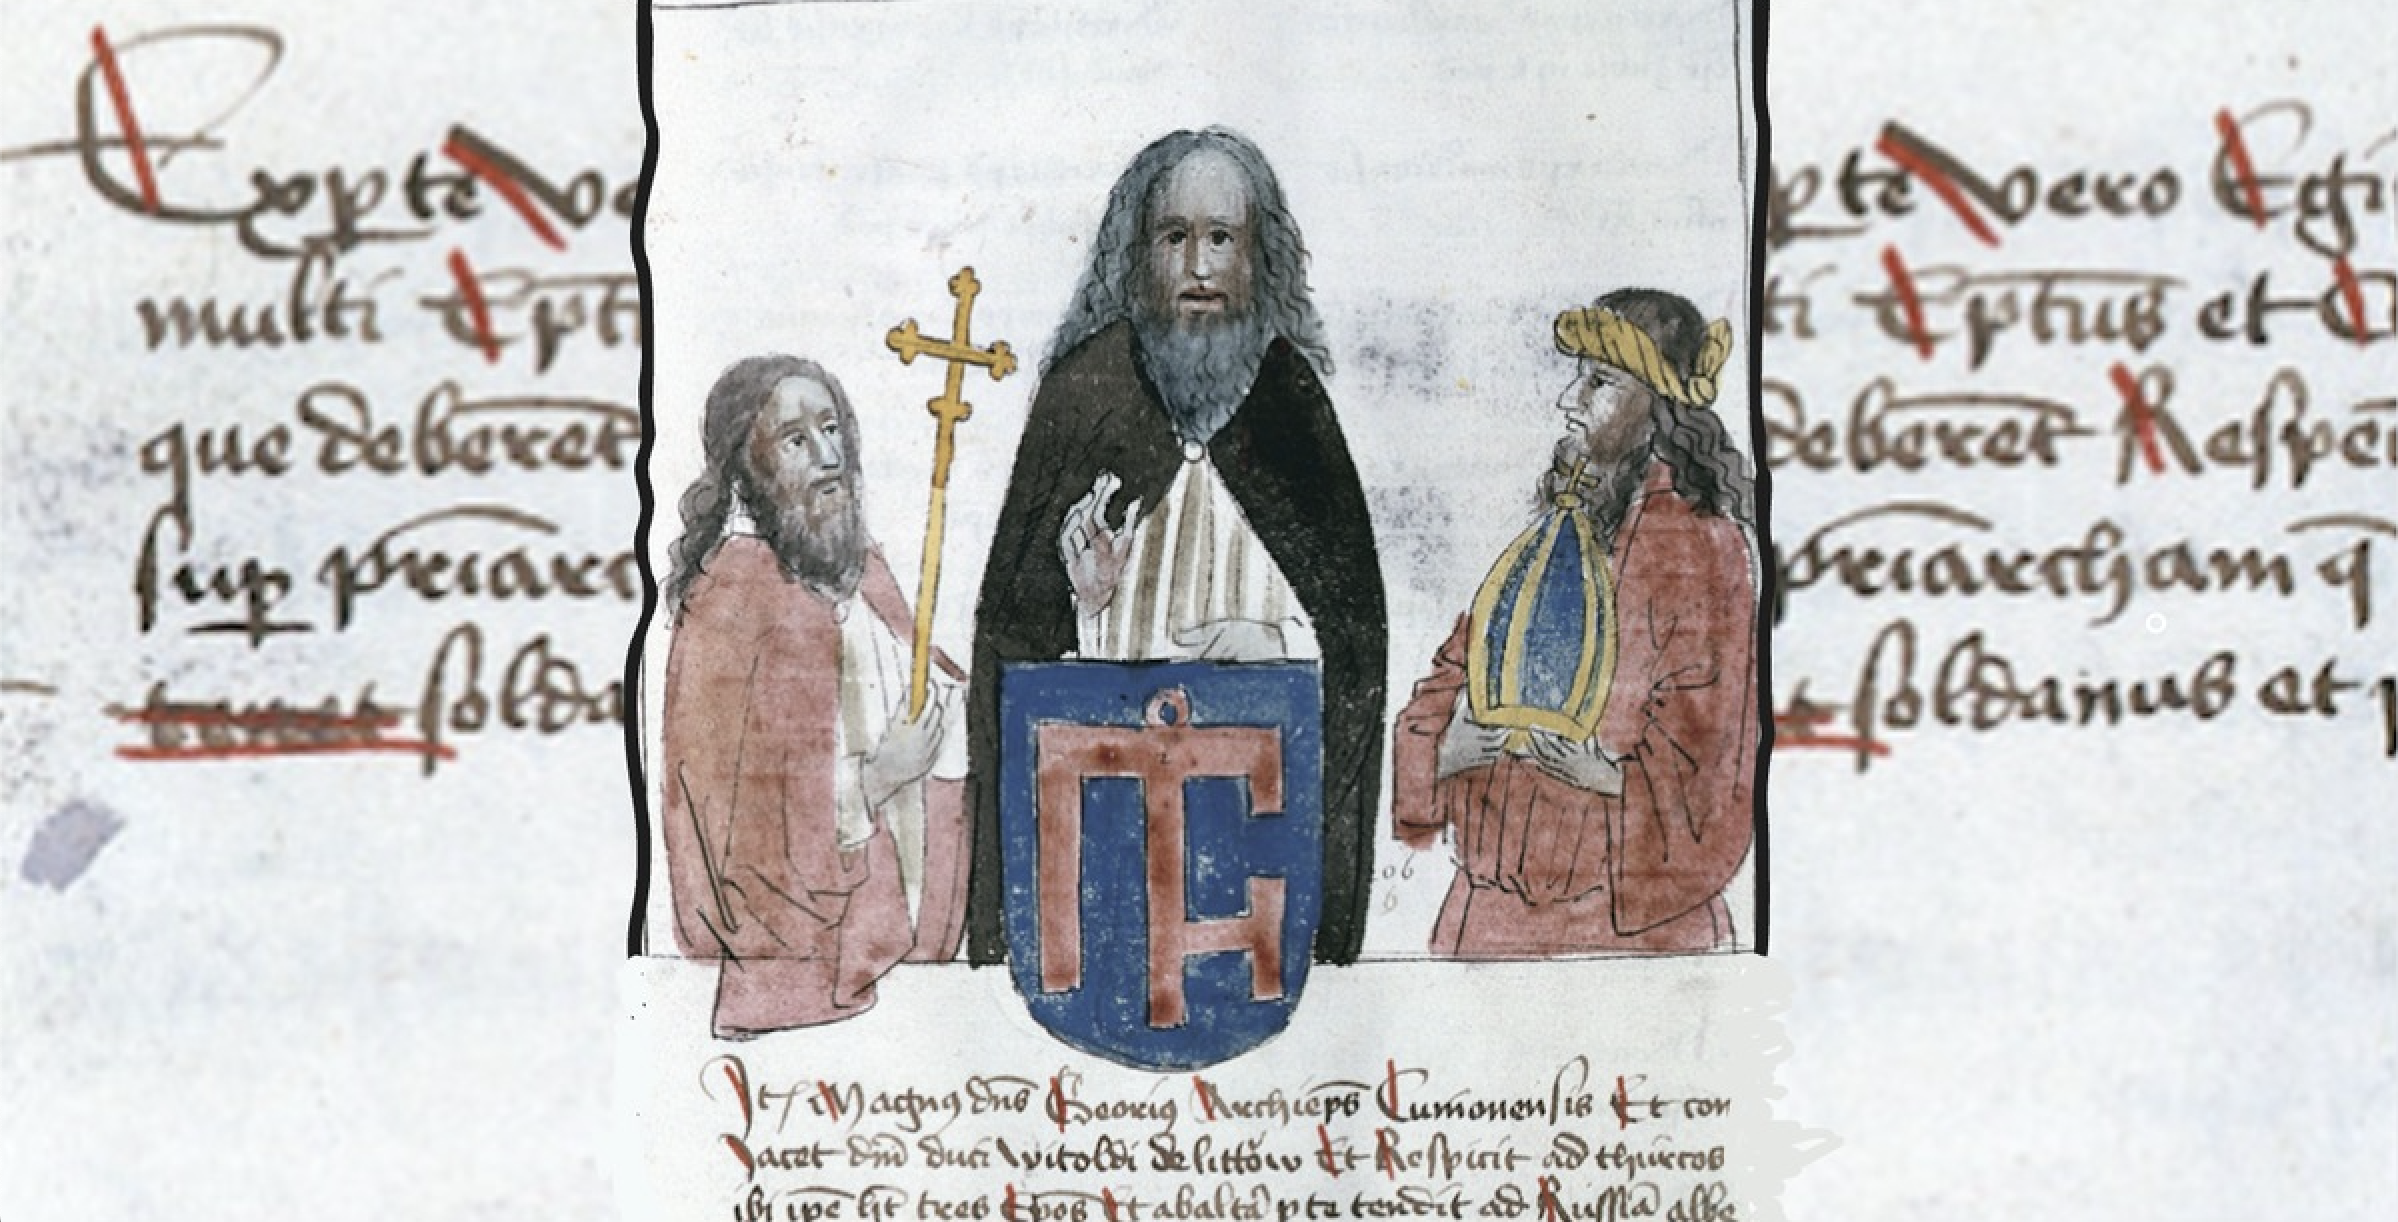 Ex pte ve
multi Epti
que deberet
sup priarc
solda
pte vero Egi
ti Eptus et
deberet Respe
priarcham q
soldanus et p
Magnus dns Georius Archieps Cumonensis Et con
Jacet dm duci witoldi de littow Et Respicit ad thurcos
ibi ipe ht tres Epos Et ab alta pte tendit ad Russia albe